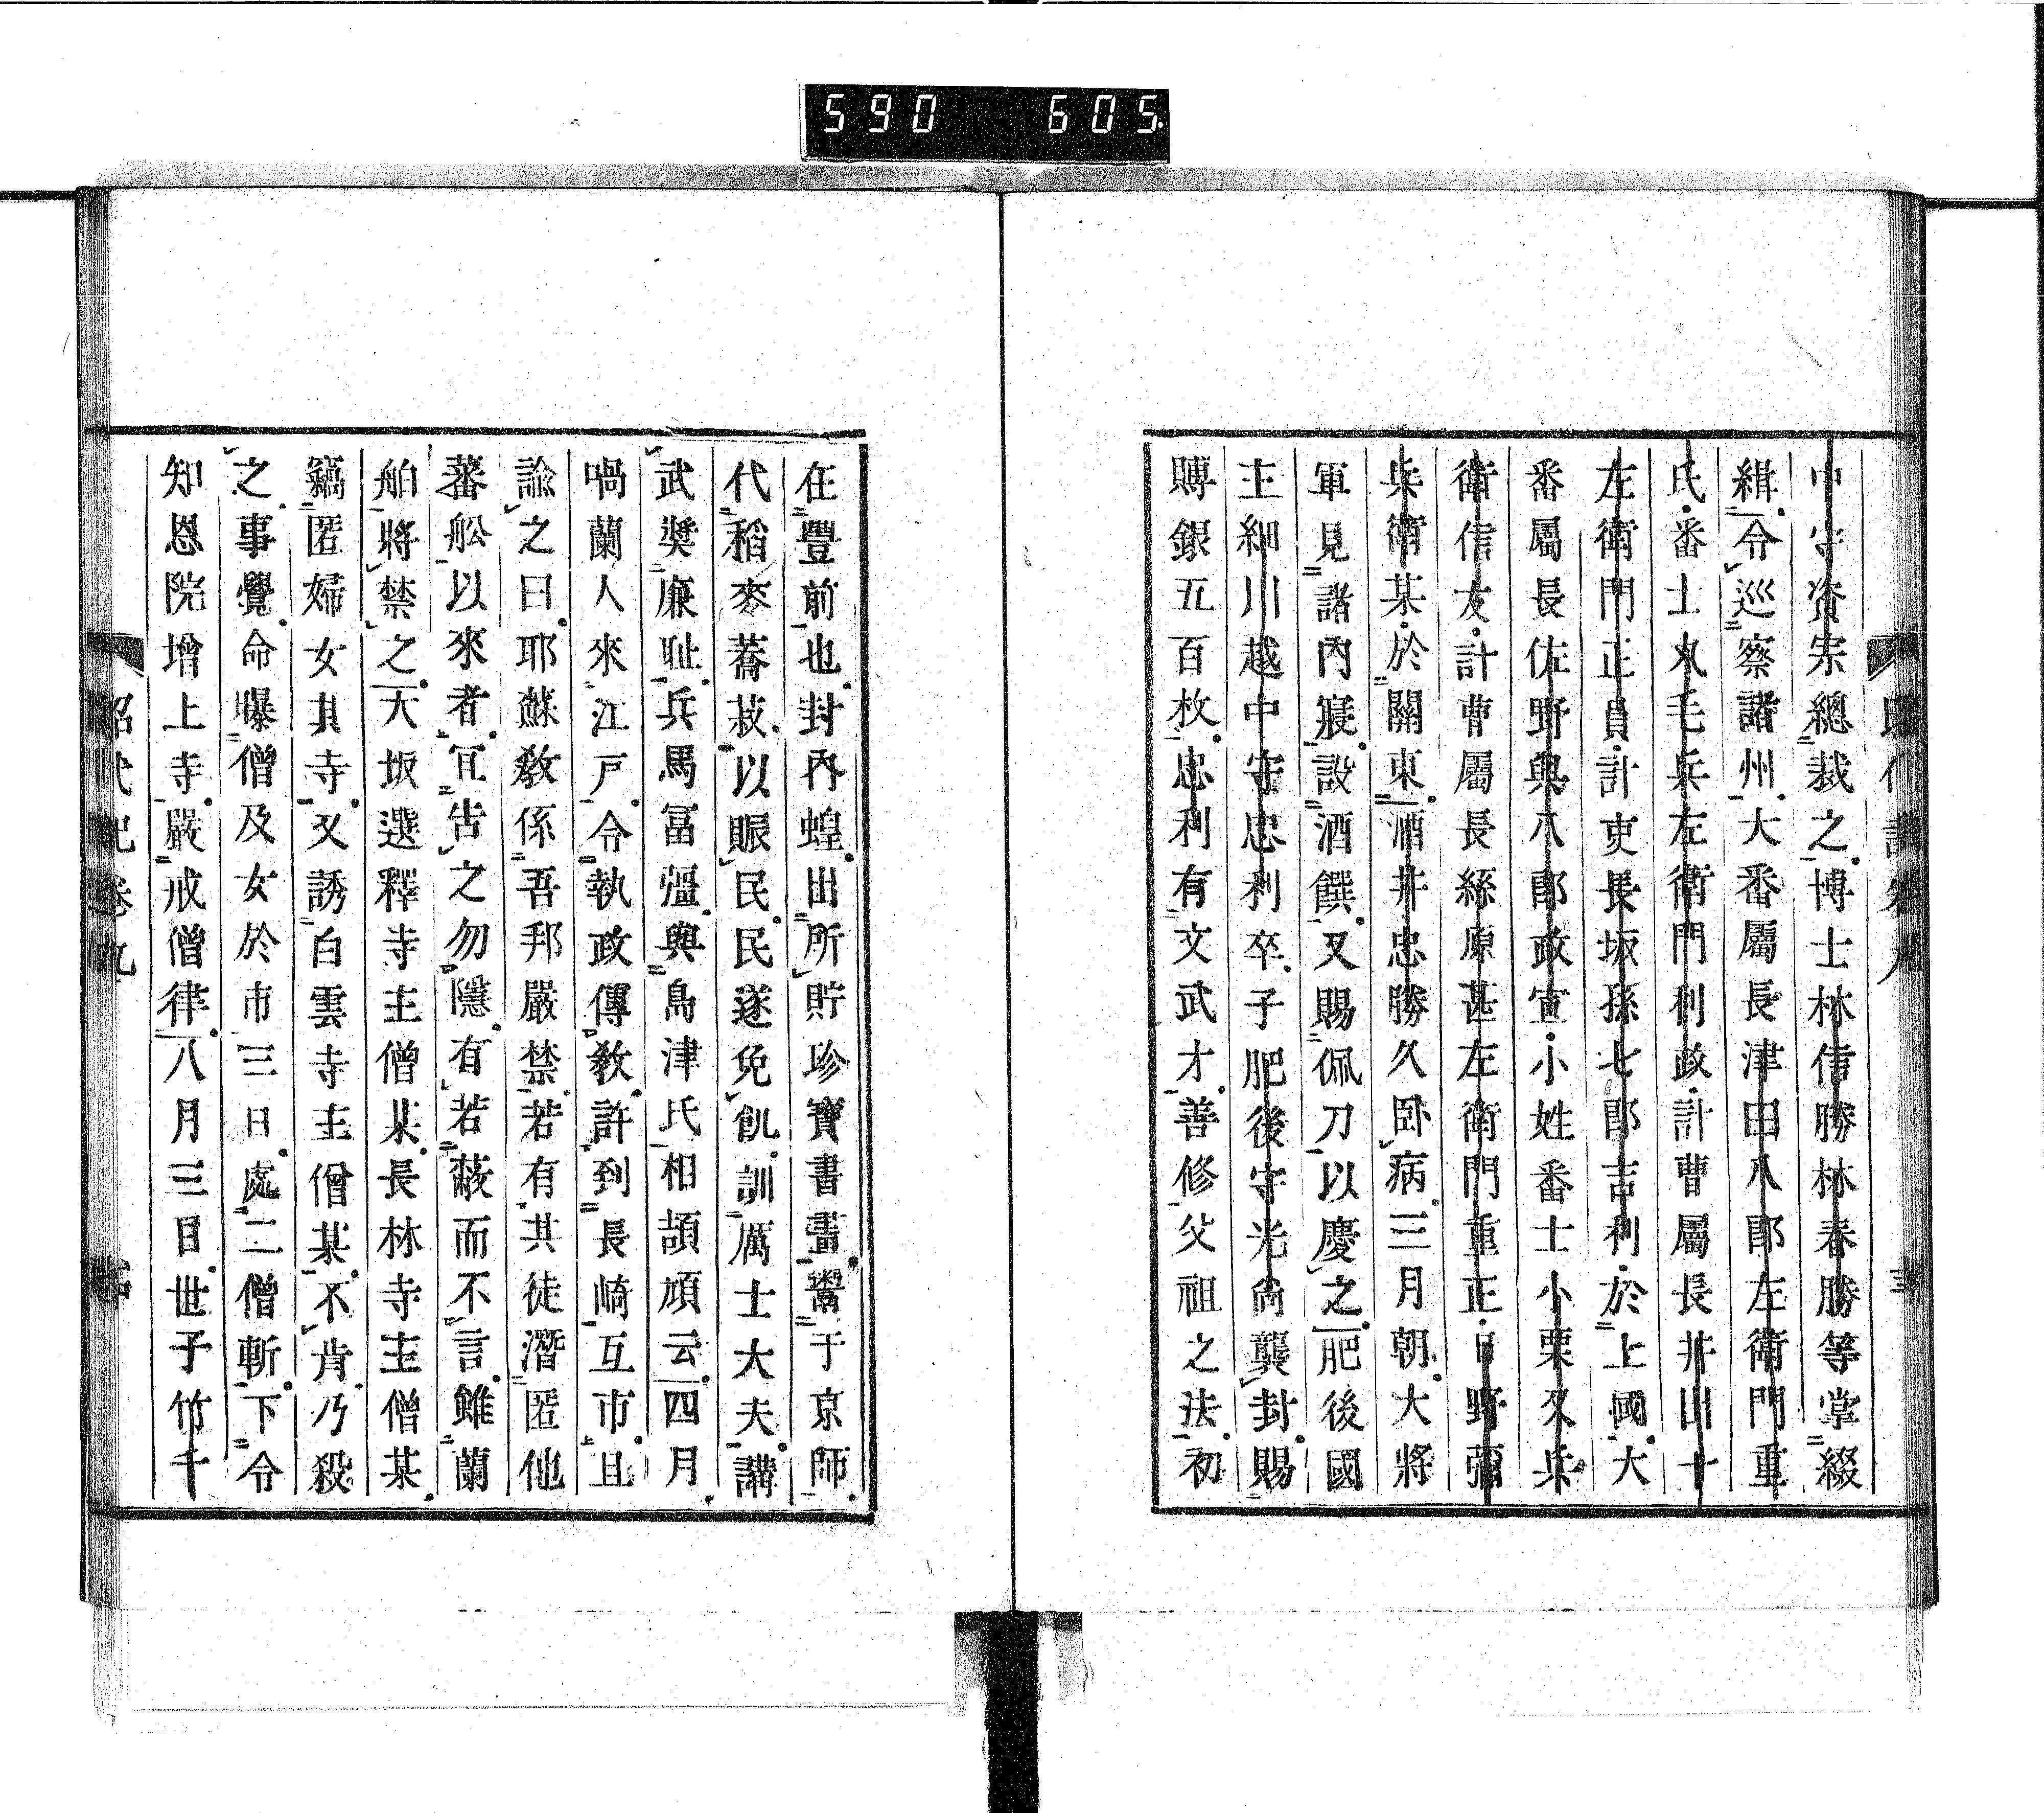 590 605
中守資宗總裁之博士林信勝林春勝等掌綴
緝令巡察諸州大番屬長津田八郎左衛門重
氏番士丸毛兵左衛門利政計曹屬長井出十
左衛門正員計吏長坂孫七郎吉利於上國大
番屬長佐野與八郎政宣小姓番士小栗又兵
衛信友計曹屬長絲原甚左衛門重正日野彌
柴衛某於關東酒井忠勝久臥病三月朝大將
軍見諸內寢設酒饌又賜佩刀以慶之肥後國
主細川越中守忠利卒子肥後守光尚襲封賜
賻銀五百枚忠利有文武才善修父祖之法初
在豐前也封內蝗出所貯珍寶書畫鬻于京師
代稻麥蕎菽以賑民民遂免飢訓厲士大夫講
武奬廉耻兵馬冨彊與島津氏相頡頏云四月
喎蘭人來江戸令執政傳教許到長崎互市且
諭之曰耶蘇教係吾邦嚴禁若有其徒潛匿他
蕃舩以來者宜告之勿隱有若蔽而不言雖蘭
舶將禁之大坂選釋寺主僧某長林寺主僧某
竊匿婦女其寺又誘白雲寺主僧某不肯乃殺
之事覺命曝僧及女於市三日處二僧斬下令
知恩院增上寺嚴戒僧律八月三日世子竹千
昭代記卷九